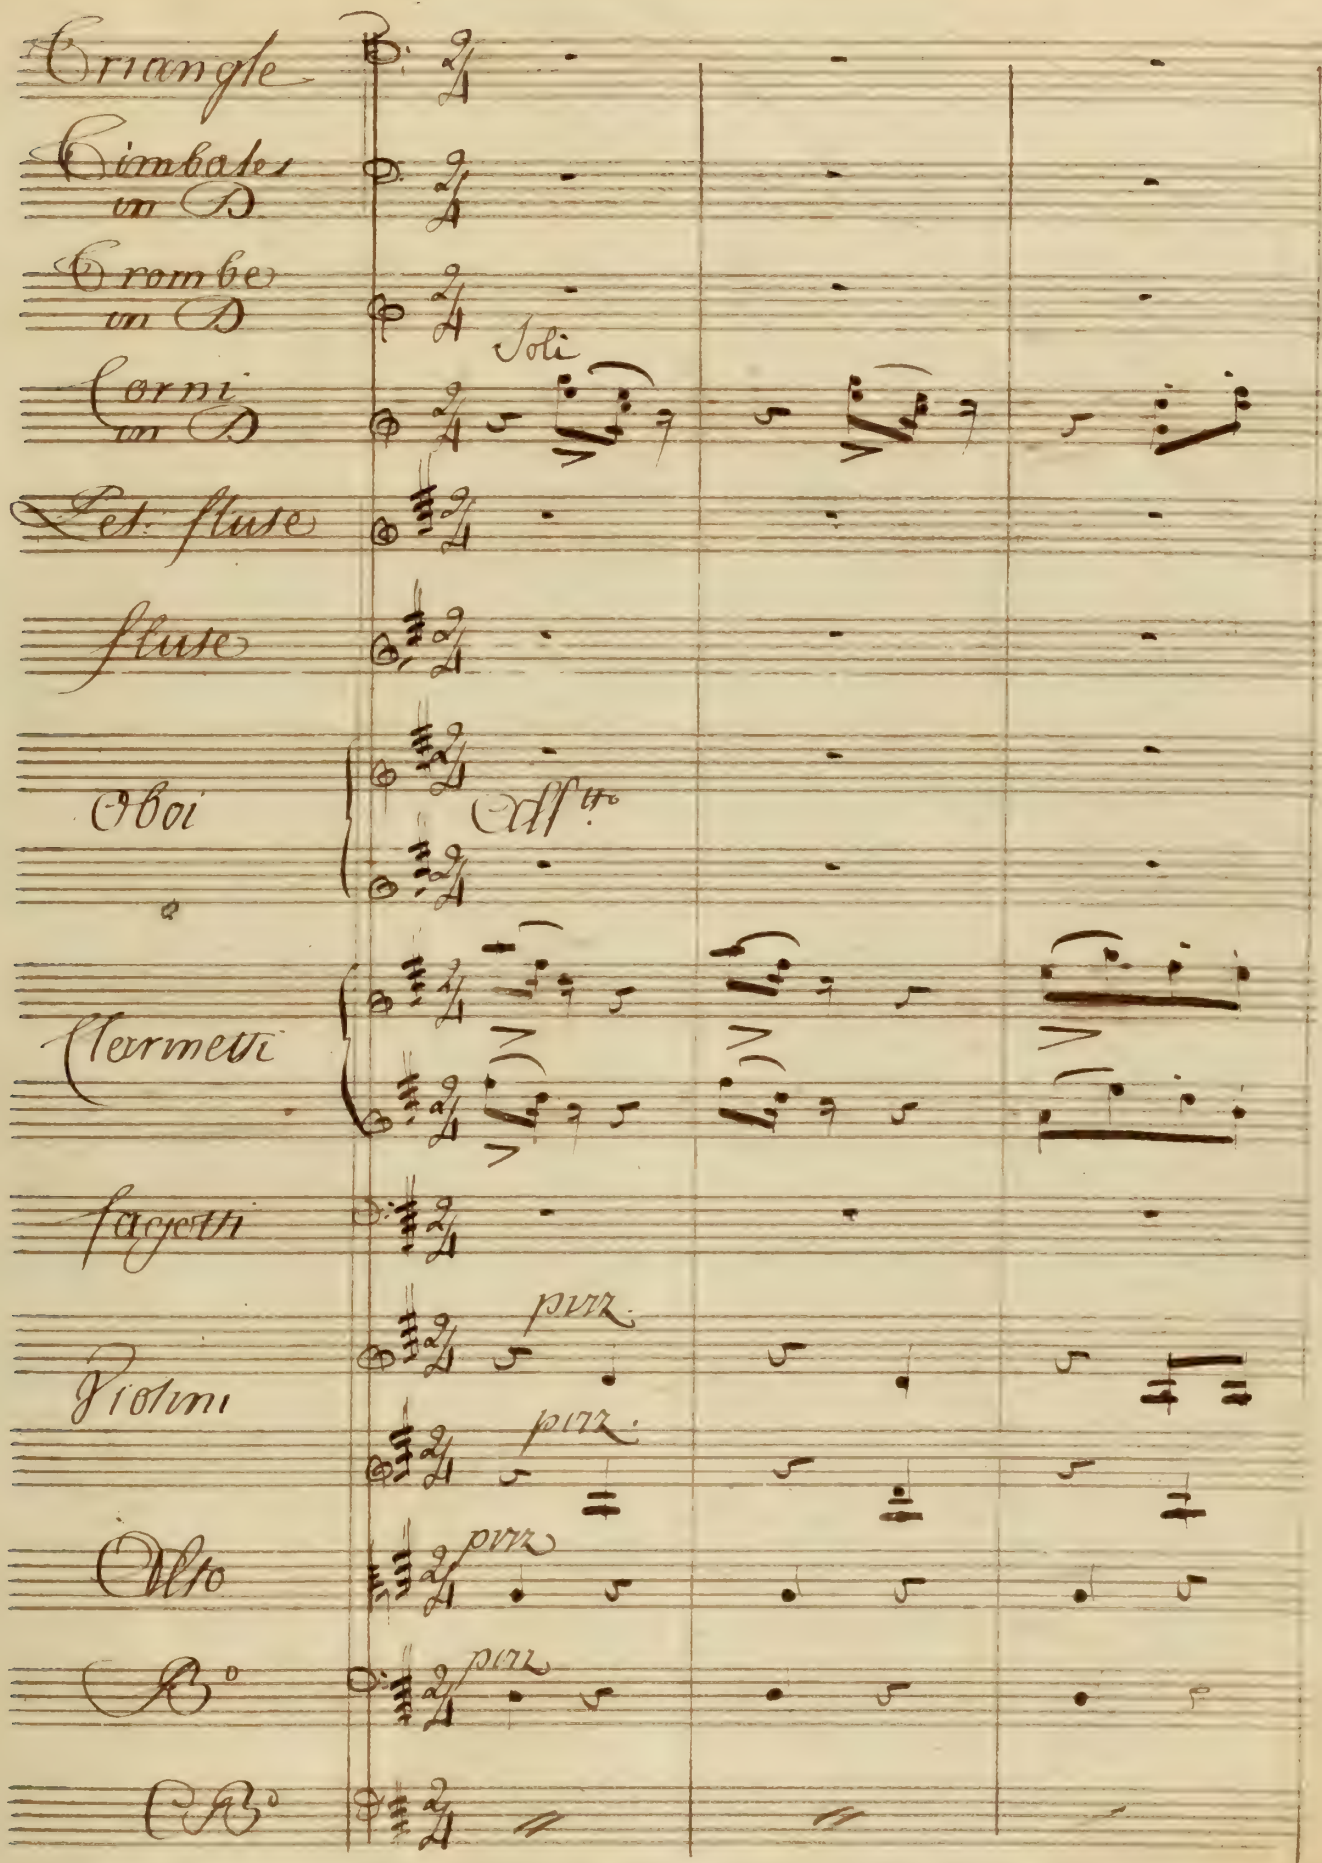 Triangle
Timbales
in D
Trombe
in D
Soli
Corni
in D
Pet. flute
flute
Oboi
All.tto
Clarinetti
fagotti
pizz.
Violini
pizz.
Alto
pizz
B.o
pizz
C B.o